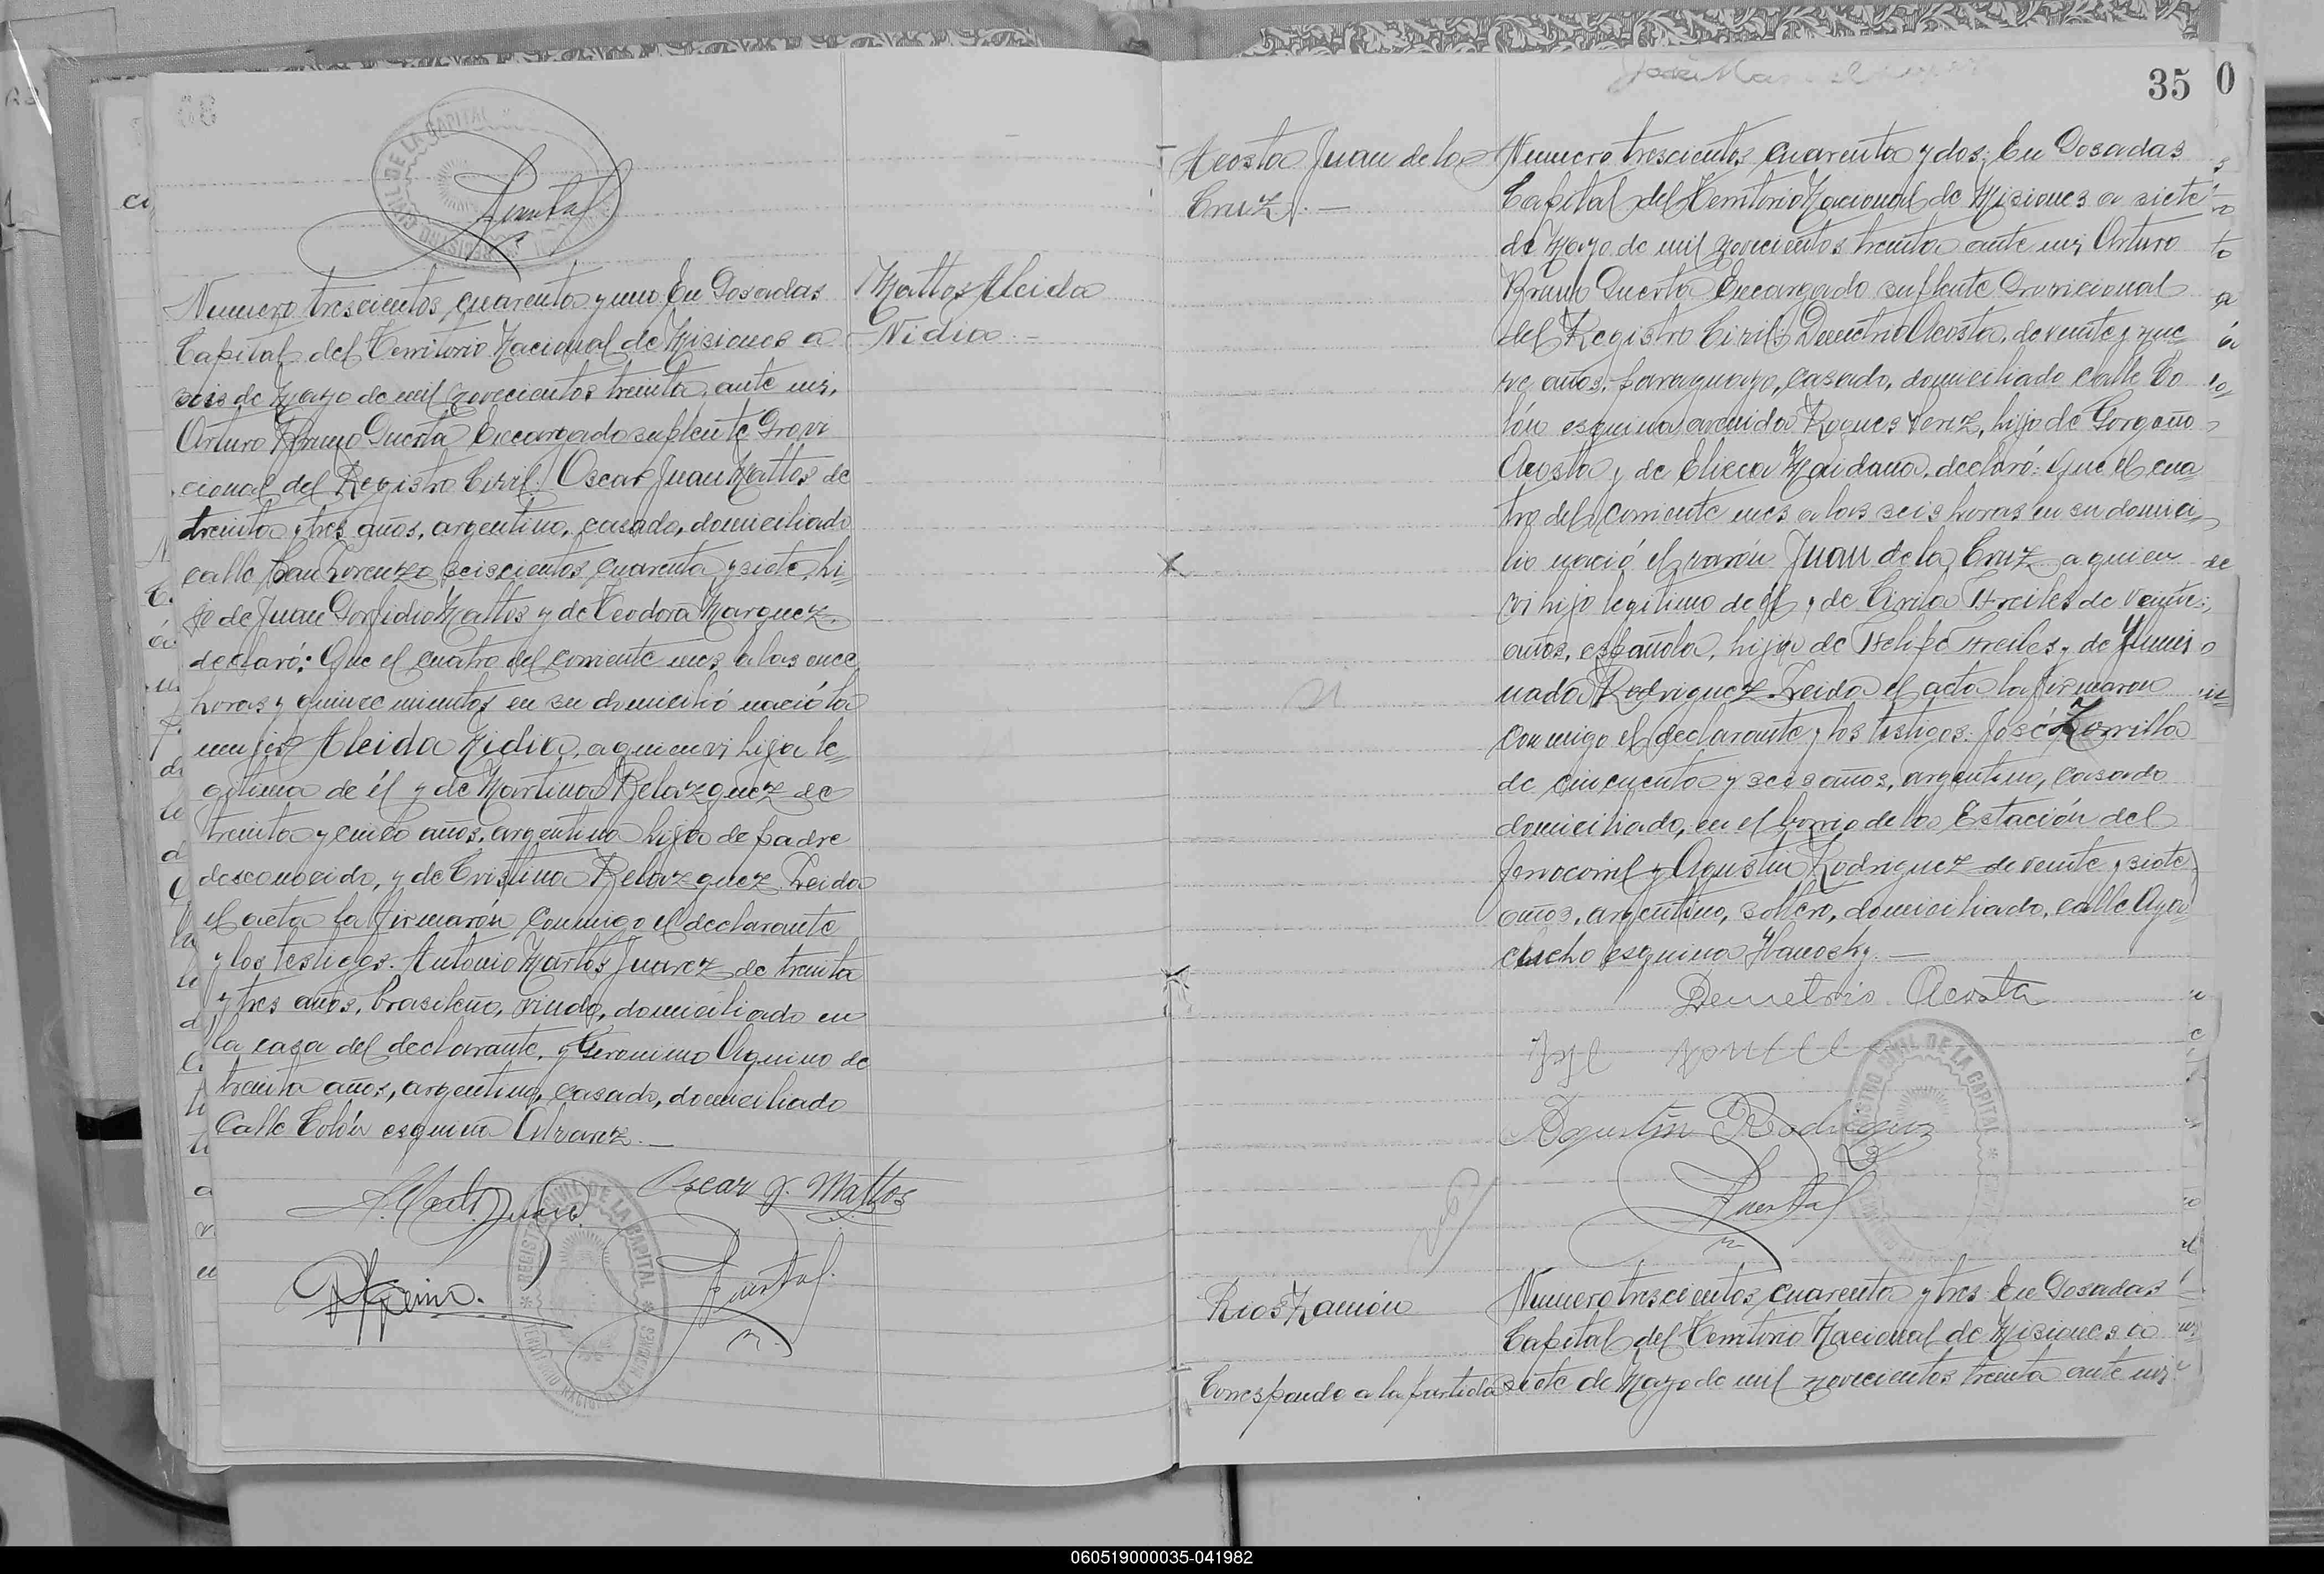 REGISTRO CIVIL DE LA CAPITAL
Numero trescientos cuarenta y uno En Posadas
Capital del Territorio Nacional de Misiones a
seis de Mayo de mil novecientos treinta, ante mi,
Arturo Bruno Puerta Encargado suplente Provi
cional del Registro Civil: Oscar Juan Mattos de
treinta y tres años, argentino, casado, domiciliado
calle San Lorenzo seiscientos cuarenta y siete, hi-
jo de Juan Porfidio Mattos y de Teodora Marquez.
declaró: Que el cuatro del corriente mes a las once
horas y quince minutos en su domicilió nació la
mujer Aleida Nidia, a quien vi hija le-
gitima de él y de Martina Belazquez de
treinta y cinco años, argentina hija de padre
desconocido, y de Cristina Belazquez. Leida
el acta la firmarón conmigo el declarante
y los testigos. Antonio Martos Juarez de treinta
y tres años, brasileño, viudo, domiciliado en
la casa del declarante, y Geronimo Aquino de
treinta años, argentino, casado, domiciliado
Calle Colón esquina Alvarez.—
Oscar J. Mattos
REGISTRO CIVIL DE LA CAPITAL
Mattos Aleida
Nidia —
35
0
Acosta Juan de la
Cruz. —
Numero trescientos cuarenta y dos; En Posadas
Capital del Territorio Nacional de Misiones a siete
de Mayo de mil novecientos treinta ante mi Arturo
Bruno Puerta Encargado suplente Provicional
del Registro Civil: Demetrio Acosta, de veinte y nue-
ve años, paraguayo, casado, domiciliado calle Co
lón esquina avenida Roques Perez, hijo de Gorgoño
Acosta y de Elisea Maidana, declaró: Que el cua-
tro del corriente mes a las seis horas en su domici-
lio nació el varón Juan de la Cruz a quien
vi hijo legitimo de él y de Cirila Freiles de veinte
años, española, hija de Felipe Freiles y de Ylumi
nada Rodriguez. Leida el acta la firmaron
conmigo el declarante y los testigos: José Zorrilla
de cincuenta y seis años, argentino, casado
domiciliado, en el barrio de la Estación del
ferrocarril y Agustin Rodriguez de veinte y siete
años, argentino, soltero, domiciliado, calle Aya-
cucho esquina Ybanosky. —
Demetrio Acosta
Agustin Rodriguez
Rios Ramón
Numero trescientos cuarenta y tres En Posadas
Capital del Territorio Nacional de Misiones a
Corresponde a la partida siete de Mayo de mil novecientos treinta ante mi
060519000035-041982